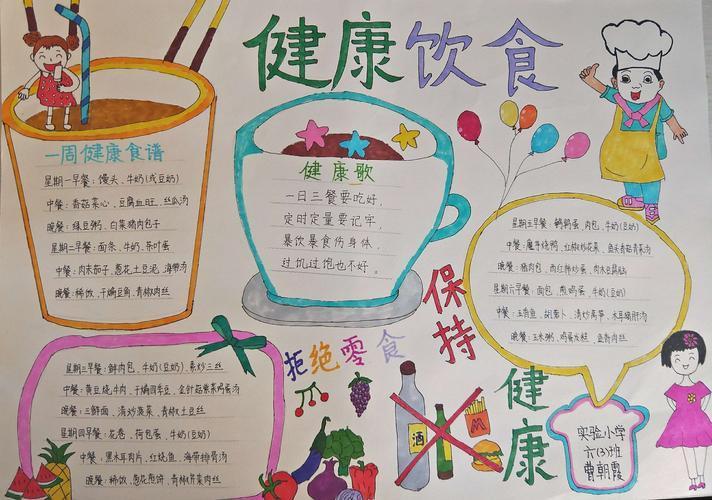 健康饮食
一周健康食谱
星期一早餐：馒头、牛奶(或豆奶)
中餐：香菇菜心、豆腐血旺、丝瓜汤
晚餐：绿豆粥、白菜猪肉包子
星期二早餐：面条、牛奶、茶叶蛋
中餐：肉末茄子、葱花土豆泥、海带汤
晚餐：稀饭、干煸豆角、青椒肉丝
健康歌
一日三餐要吃好，
定时定量要记牢，
暴饮暴食伤身体，
过饥过饱也不好。
星期五早餐：鹌鹑蛋、肉包、牛奶(豆奶)
中餐：魔芋烧鸭、红椒炒花菜、鱼头香菇青菜汤
晚餐：猪肉包、西红柿炒蛋、肉末豆腐脑
星期六早餐：面包、煎鸡蛋、牛奶(豆奶)
中餐：五香鱼、胡萝卜、清炒莴笋、木耳猪肝汤
晚餐：玉米粥、鸡蛋发糕、鱼香肉丝
保持
健康
拒绝零食
星期三早餐：鲜肉包、牛奶(豆奶)、素炒三丝
中餐：黄豆烧牛肉、干煸四季豆、金针菇紫菜鸡蛋汤
晚餐：三鲜面、清炒菠菜、青椒土豆丝
星期四早餐：花卷、荷包蛋、牛奶(豆奶)
中餐：黑木耳肉片、红烧鱼、海带排骨汤
晚餐：稀饭、葱花煎饼、青椒芹菜肉丝
酒
M
实验小学
六(3)班
曹朝霞